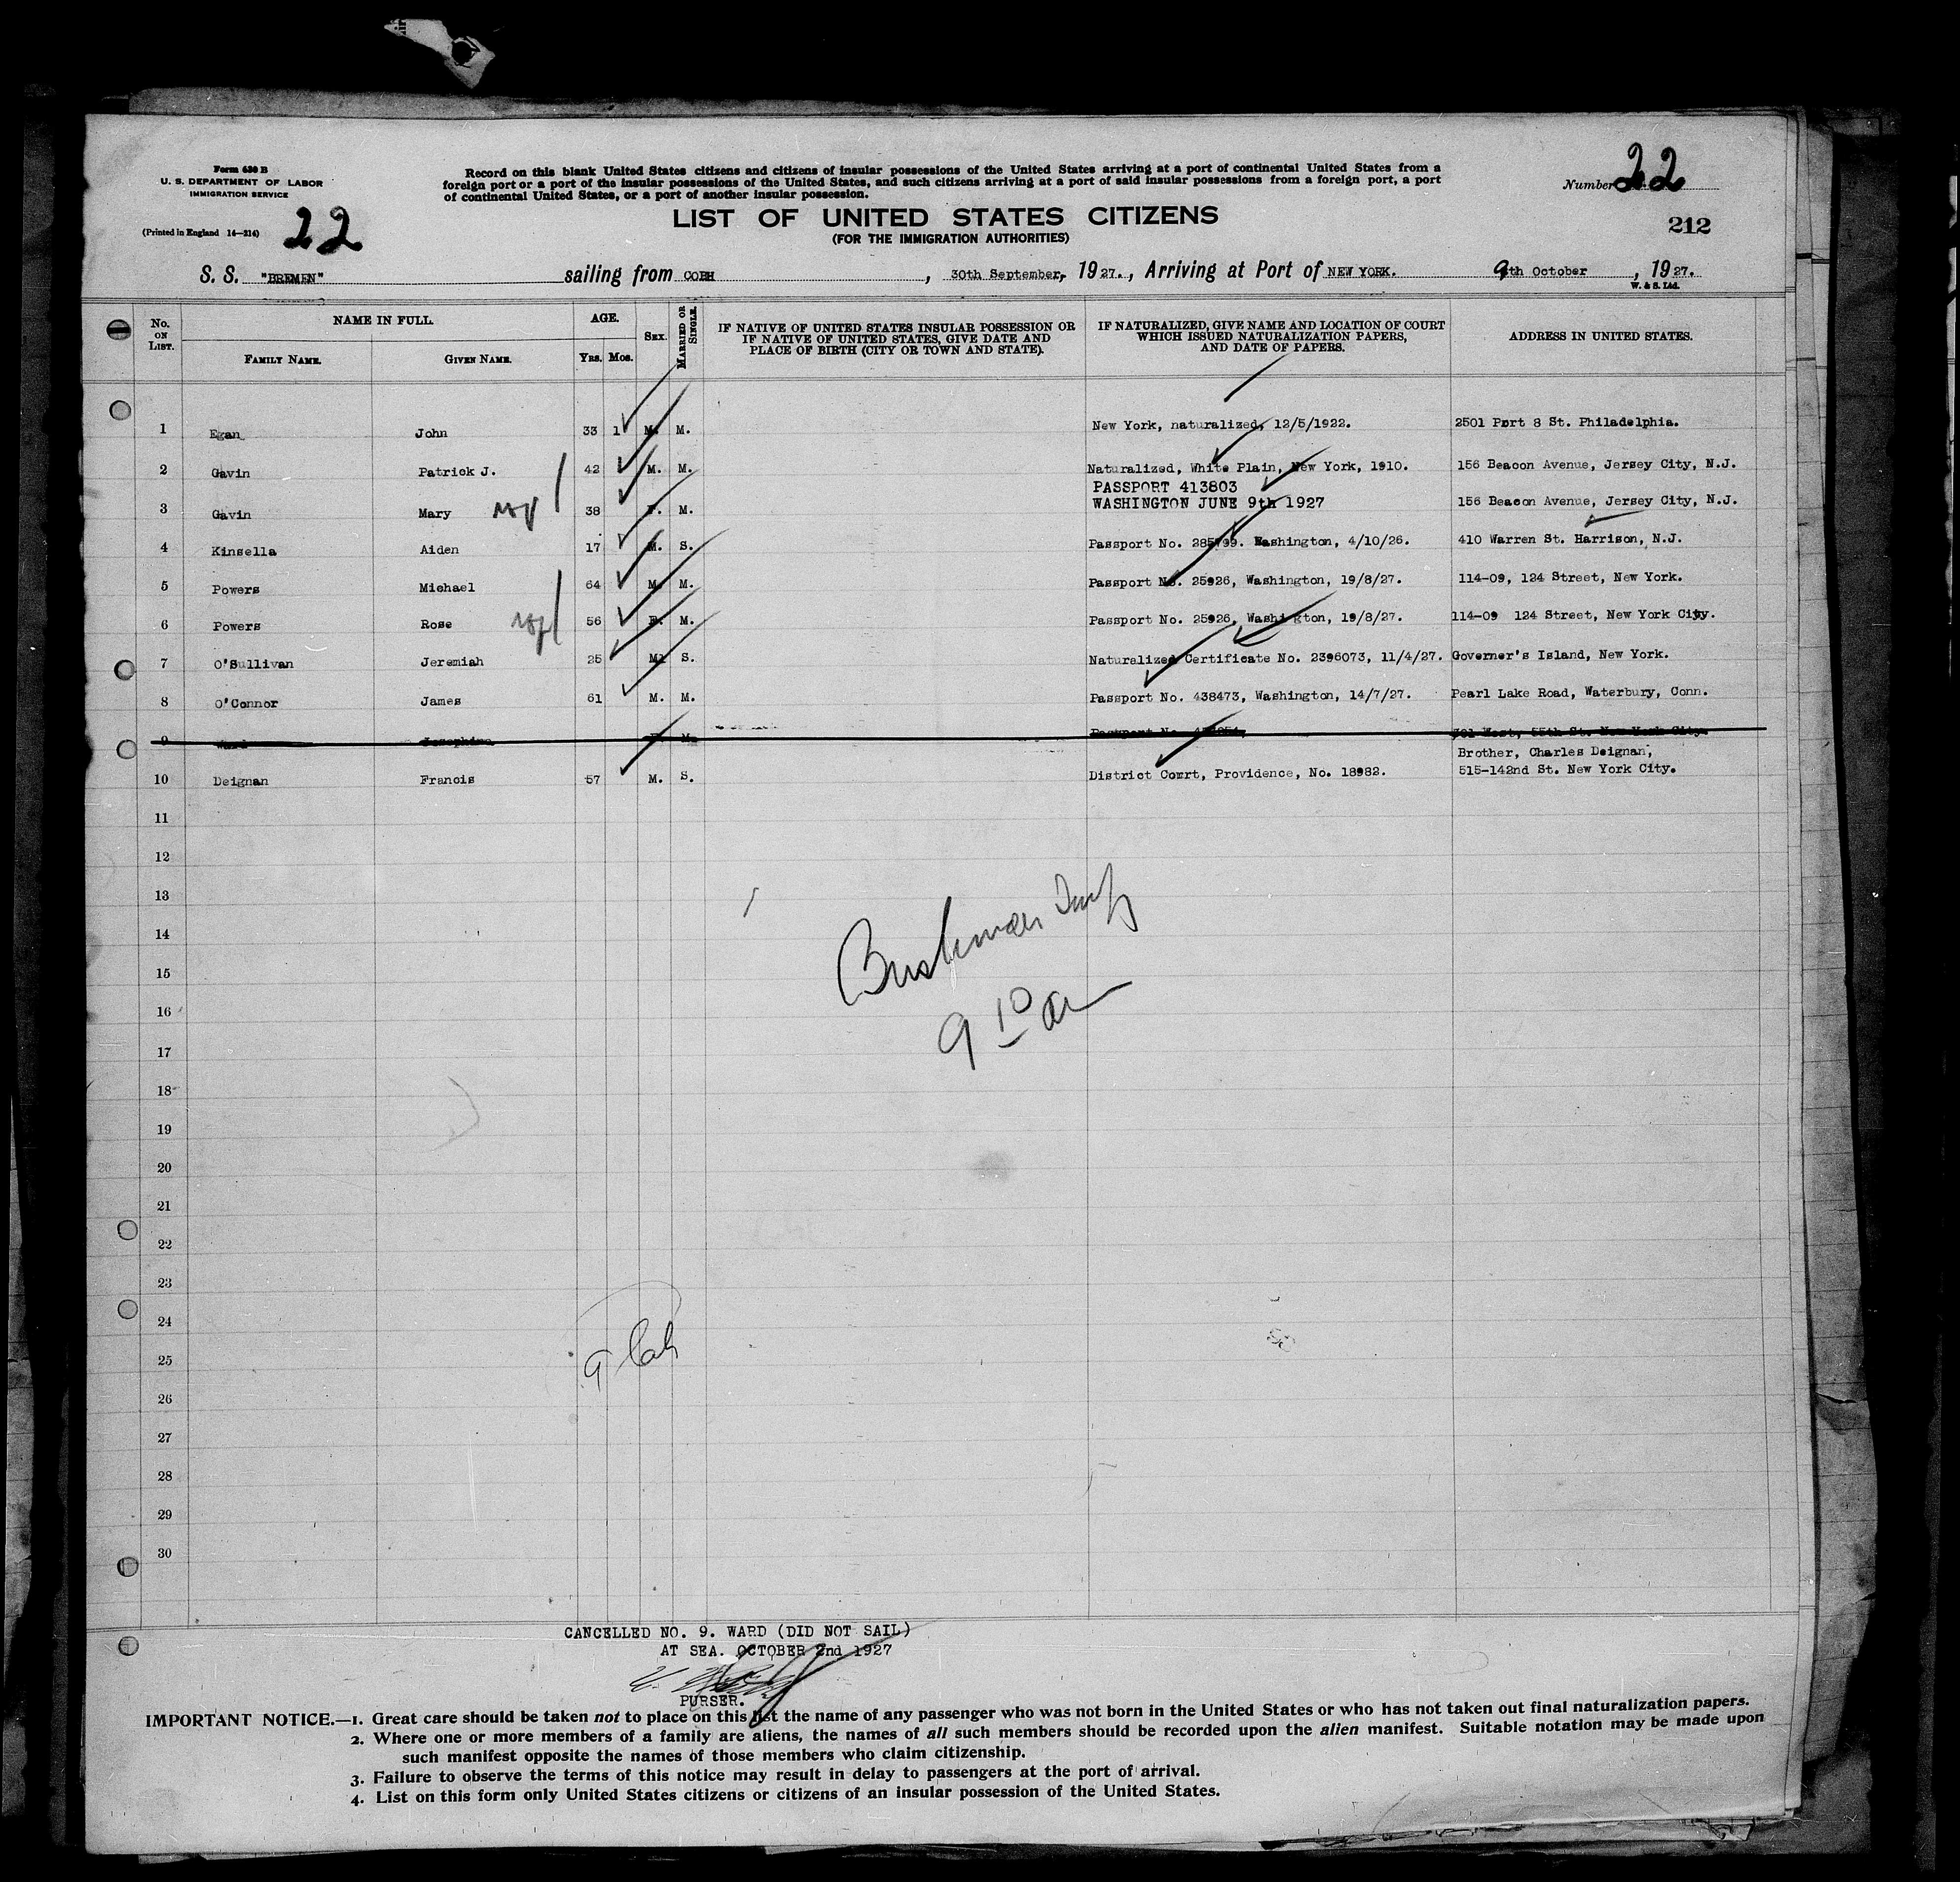 Form 630 B
U. S. DEPARTMENT OF LABOR
IMMIGRATION SERVICE
(Printed in England 14—214)
22
Record on this blank United States citizens and citizens of insular possessions of the United States arriving at a port of continental United States from a
foreign port or a port of the insular possessions of the United States, and such citizens arriving at a port of said insular possessions from a foreign port, a port
of continental United States, or a port of another insular possession.
Number 22
LIST OF UNITED STATES CITIZENS
(FOR THE IMMIGRATION AUTHORITIES)
212
S. S. "BREMEN" sailing from COBH, 30th September, 1927., Arriving at Port of NEW YORK. 9th October, 1927.
W. & S. Ltd.
No. ON LIST. NAME IN FULL. FAMILY NAME. GIVEN NAME. AGE. YRS. MOS. SEX. MARRIED OR SINGLE.
IF NATIVE OF UNITED STATES INSULAR POSSESSION OR
IF NATIVE OF UNITED STATES, GIVE DATE AND
PLACE OF BIRTH (CITY OR TOWN AND STATE).
IF NATURALIZED, GIVE NAME AND LOCATION OF COURT
WHICH ISSUED NATURALIZATION PAPERS,
AND DATE OF PAPERS.
ADDRESS IN UNITED STATES.
1 Egan John 33 1 M. M. New York, naturalized, 12/5/1922. 2501 Port 8 St. Philadelphia.
2 Gavin Patrick J. 42 M. M. Naturalized, White Plain, New York, 1910. 156 Beacon Avenue, Jersey City, N.J.
PASSPORT 413803
3 Gavin Mary 38 F. M. WASHINGTON JUNE 9th 1927 156 Beacon Avenue, Jersey City, N.J.
4 Kinsella Aiden 17 M. S. Passport No. 285799. Washington, 4/10/26. 410 Warren St. Harrison, N.J.
5 Powers Michael 64 M. M. Passport No. 25926, Washington, 19/8/27. 114-09, 124 Street, New York.
6 Powers Rose 56 F. M. Passport No. 25926, Washington, 19/8/27. 114-09 124 Street, New York City.
7 O'Sullivan Jeremiah 25 M. S. Naturalized Certificate No. 2396073, 11/4/27. Governer's Island, New York.
8 O'Connor James 61 M. M. Passport No. 438473, Washington, 14/7/27. Pearl Lake Road, Waterbury, Conn.
9 Ward Josephine F. M. Passport No. 301 West, 55th St. New York City.
Brother, Charles Deignan,
10 Deignan Francis 57 M. S. District Court, Providence, No. 18982. 515-142nd St. New York City.
11
12
13
14
15
16
17
18
19
20
21
22
23
24
25
26
27
28
29
30
9 10 a
CANCELLED NO. 9. WARD (DID NOT SAIL)
AT SEA. OCTOBER 2nd 1927
PURSER.
IMPORTANT NOTICE.—1. Great care should be taken not to place on this list the name of any passenger who was not born in the United States or who has not taken out final naturalization papers.
2. Where one or more members of a family are aliens, the names of all such members should be recorded upon the alien manifest. Suitable notation may be made upon
such manifest opposite the names of those members who claim citizenship.
3. Failure to observe the terms of this notice may result in delay to passengers at the port of arrival.
4. List on this form only United States citizens or citizens of an insular possession of the United States.